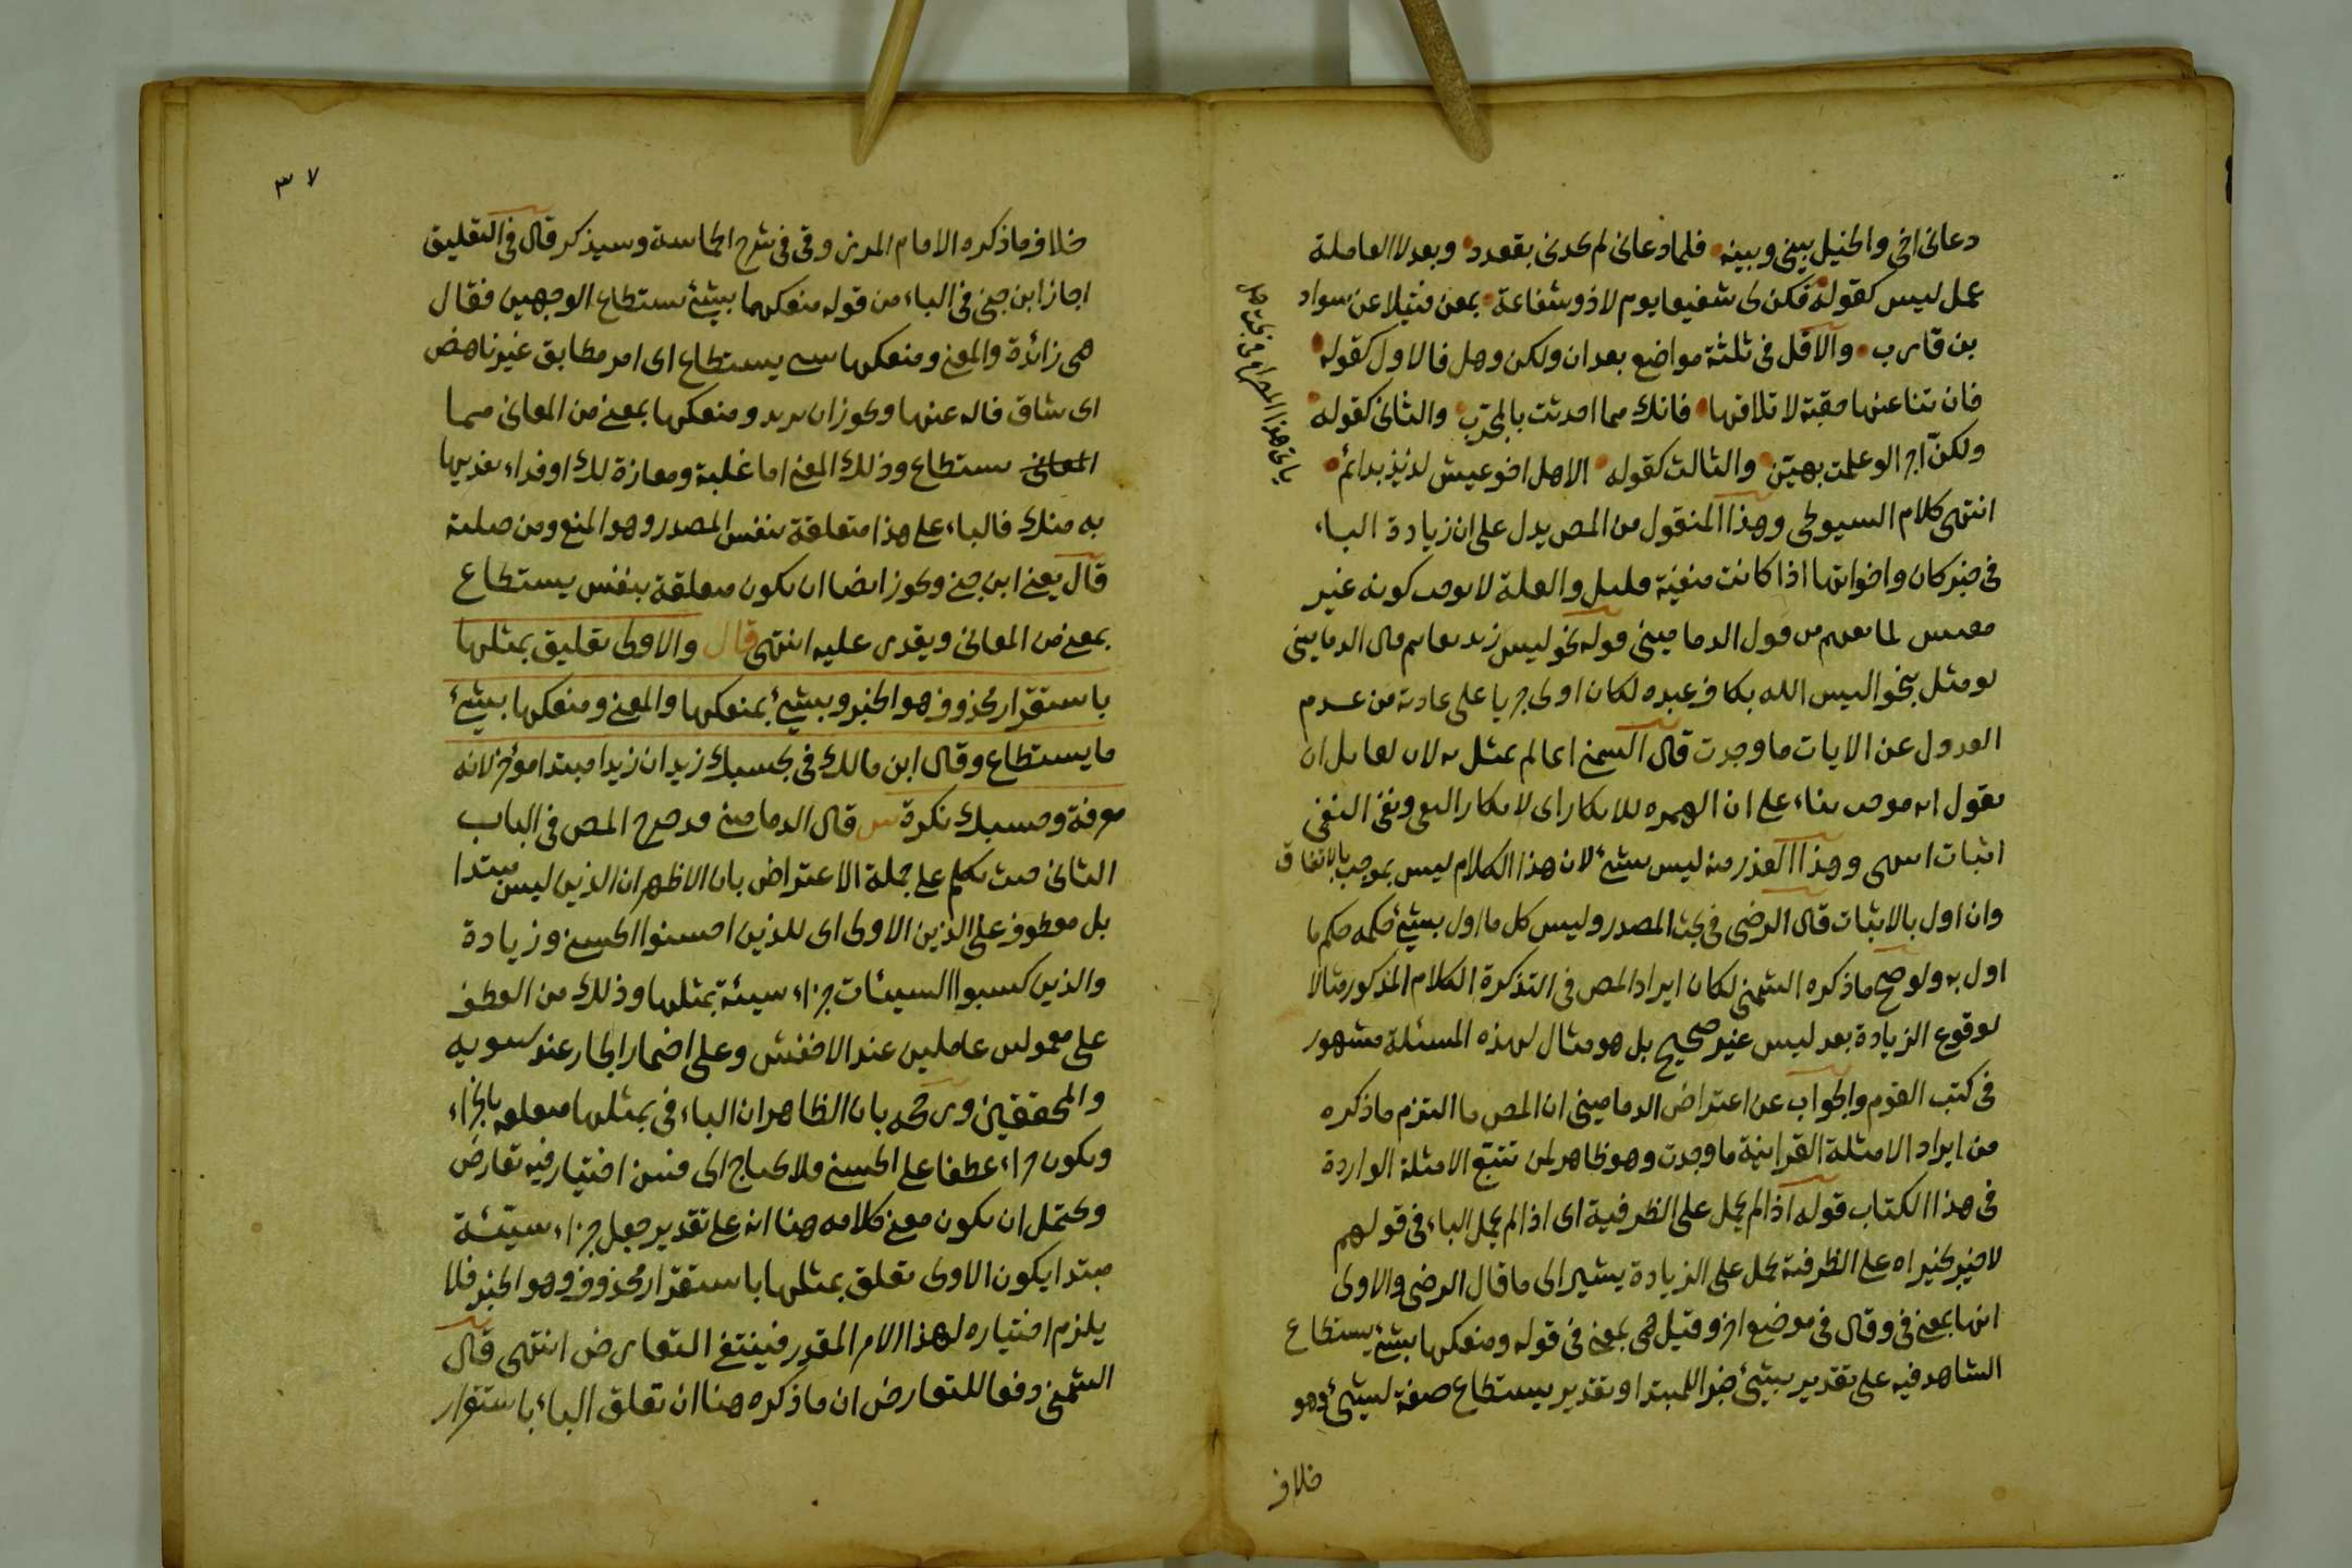 دعانى اخى والخيل بينى وبينه فلما دعانى لم يجدنى بقعدد وبعد لا العاملة
عمل ليس كقوله فكن لى شفيعا يوم لا ذو شفاعة بمغن فتيلا عن سواد
بن قارب والاقل فى ثلثة مواضع بعد ان ولكن وهل فالاول كقوله
فان تنأ عنها حقبة لا تلاقها فانك مما احدثت بالمجرب والثانى كقوله
ولكنّ اجرا لو علمت بهين والثالث كقوله الا هل اخو عيش لذيذ بدائم
انتهى كلام السيوطى وهذا المنقول من المص يدل على ان زيادة الباء
فى خبر كان واخواتها اذا كانت منفية قليل والعلة لا توجب كونه غير
مقيس لما تفهم من قول الدمامينى قوله نحو ليس زيد بقائم قال الدمامينى
لو مثل بنحو اليس الله بكاف عبده لكان اولى جريا على عادته من عدم
العدول عن الايات ما وجدت قال الشمنى انما لم يمثل به لان لقائل ان
يقول انه موجب بناء على ان الهمزه للانكار اى لانكار النفى ونفى النفى
اثبات انتهى وهذا العذر منه ليس بشئ لان هذا الكلام ليس بموجب بالاتفاق
وان اول بالاثبات قال الرضى فى بحث المصدر وليس كل ما اول بشئ حكمه حكم ما
اول به ولو صح ما ذكره الشمنى لكان ايراد المص فى التذكرة الكلام المذكور مثالا
لوقوع الزيادة بعد ليس غير صحيح بل هو مثال لهذه المسئلة مشهور
فى كتب القوم والجواب عن اعتراض الدمامينى ان المص ما التزم ما ذكره
من ايراد الامثلة القرانية ما وجدت وهو ظاهر لمن تتبع الامثلة الواردة
فى هذا الكتاب قوله اذا لم يحمل على الظرفية اى اذا لم يحمل الباء فى قولهم
لا خير بخير اه على الظرفية يحمل على الزيادة يشير الى ما قال الرضى والاولى
انها بمعنى فى وقال فى موضع اخر وقيل هى بمعنى فى قوله ومنعكها بشئ يستطاع
الشاهد فيه على تقدير بشئ خبرا للمبتدا وتقدير يستطاع صفة لبشئ وهو
خلاف
٣٧
خلاف ما ذكره الامام المرزوقى فى شرح الحماسة وسيذكر قال فى التعليق
اجاز ابن جنى فى الباء من قوله منعكها بشئ يستطاع الوجهين فقال
هى زائدة والمعنى ومنعكها شئ يستطاع اى امر مطابق غير ناهض
اى شاق فاله عنها ويجوز ان يريد ومنعكها بمعنى من المعانى مما
المعانى يستطاع وذلك المعنى اما غلبة ومعازة لك او فداء نفديها
به منك فالباء على هذا متعلقة بنفس المصدر وهو المنع ومن صلته
قال يعنى ابن جنى ويجوز ايضا ان يكون متعلقة بنفس يستطاع
بمعنى من المعانى ويقدر عليه انتهى قال والاولى تعليق بمثلها
باستقرار محذوف هو الخبر وبشئ بمنعكها والمعنى ومنعكها بشئ
ما يستطاع وقال ابن مالك فى بحسبك زيد ان زيدا مبتدا مؤخر لانه
معرفة وحسبك نكرة قال الدمامينى قد صرح المص فى الباب
الثانى حيث تكلم على جملة الاعتراض بان الاظهر ان الذين ليس مبتدا
بل معطوف على الذين الاولى اى للذين احسنوا الحسنى وزيادة
والذين كسبوا السيئات جزاء سيئة بمثلها وذلك من العطف
على معمولى عاملين عند الاخفش وعلى اضمار الجار عند سيبويه
والمحققين ورجحه بان الظاهر ان الباء فى بمثلها متعلقه بالجزاء
ويكون جزاء عطفا على الحسنى فلا يحتاج الى اختيار فيه تعارض
ويحتمل ان يكون معنى كلامه هنا انه على تقدير جعل جزاء سيئة
مبتدا يكون الاولى تعلق بمثلها باستقرار محذوف وهو الخبر فلا
يلزم اختياره لهذا الامر المقدر فينتفى التعارض انتهى قال
الشمنى دفعا للتعارض ان ما ذكره هنا ان تعلق الباء باستقرار